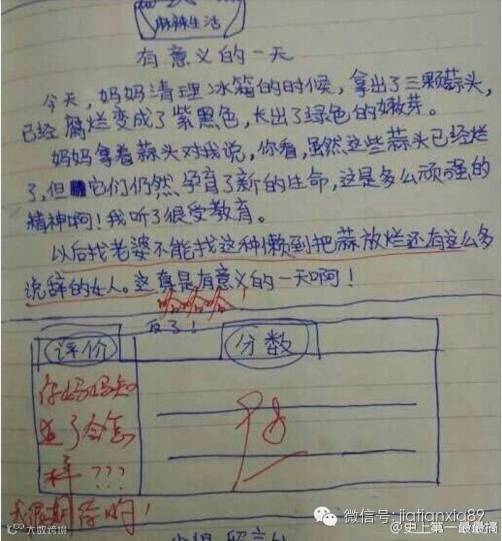 麻辣生活
有意义的一天
今天，妈妈清理冰箱的时候，拿出了三颗蒜头，
已经腐烂变成了紫黑色，长出了绿色的嫩芽。
妈妈拿着蒜头对我说，你看，虽然这些蒜头已经烂
了，但它们仍然孕育了新的生命，这是多么顽强的
精神啊！我听了很受教育。
以后找老婆不能找这种懒到把蒜放烂还有这么多
说辞的女人。这真是有意义的一天啊！
哈哈哈哈
反了！
评价
分数
你妈妈知
道了会怎
样？？？
我很期待哟！
98
微信号: jiatianxia89
大咸跨境
@史上第一最最搞